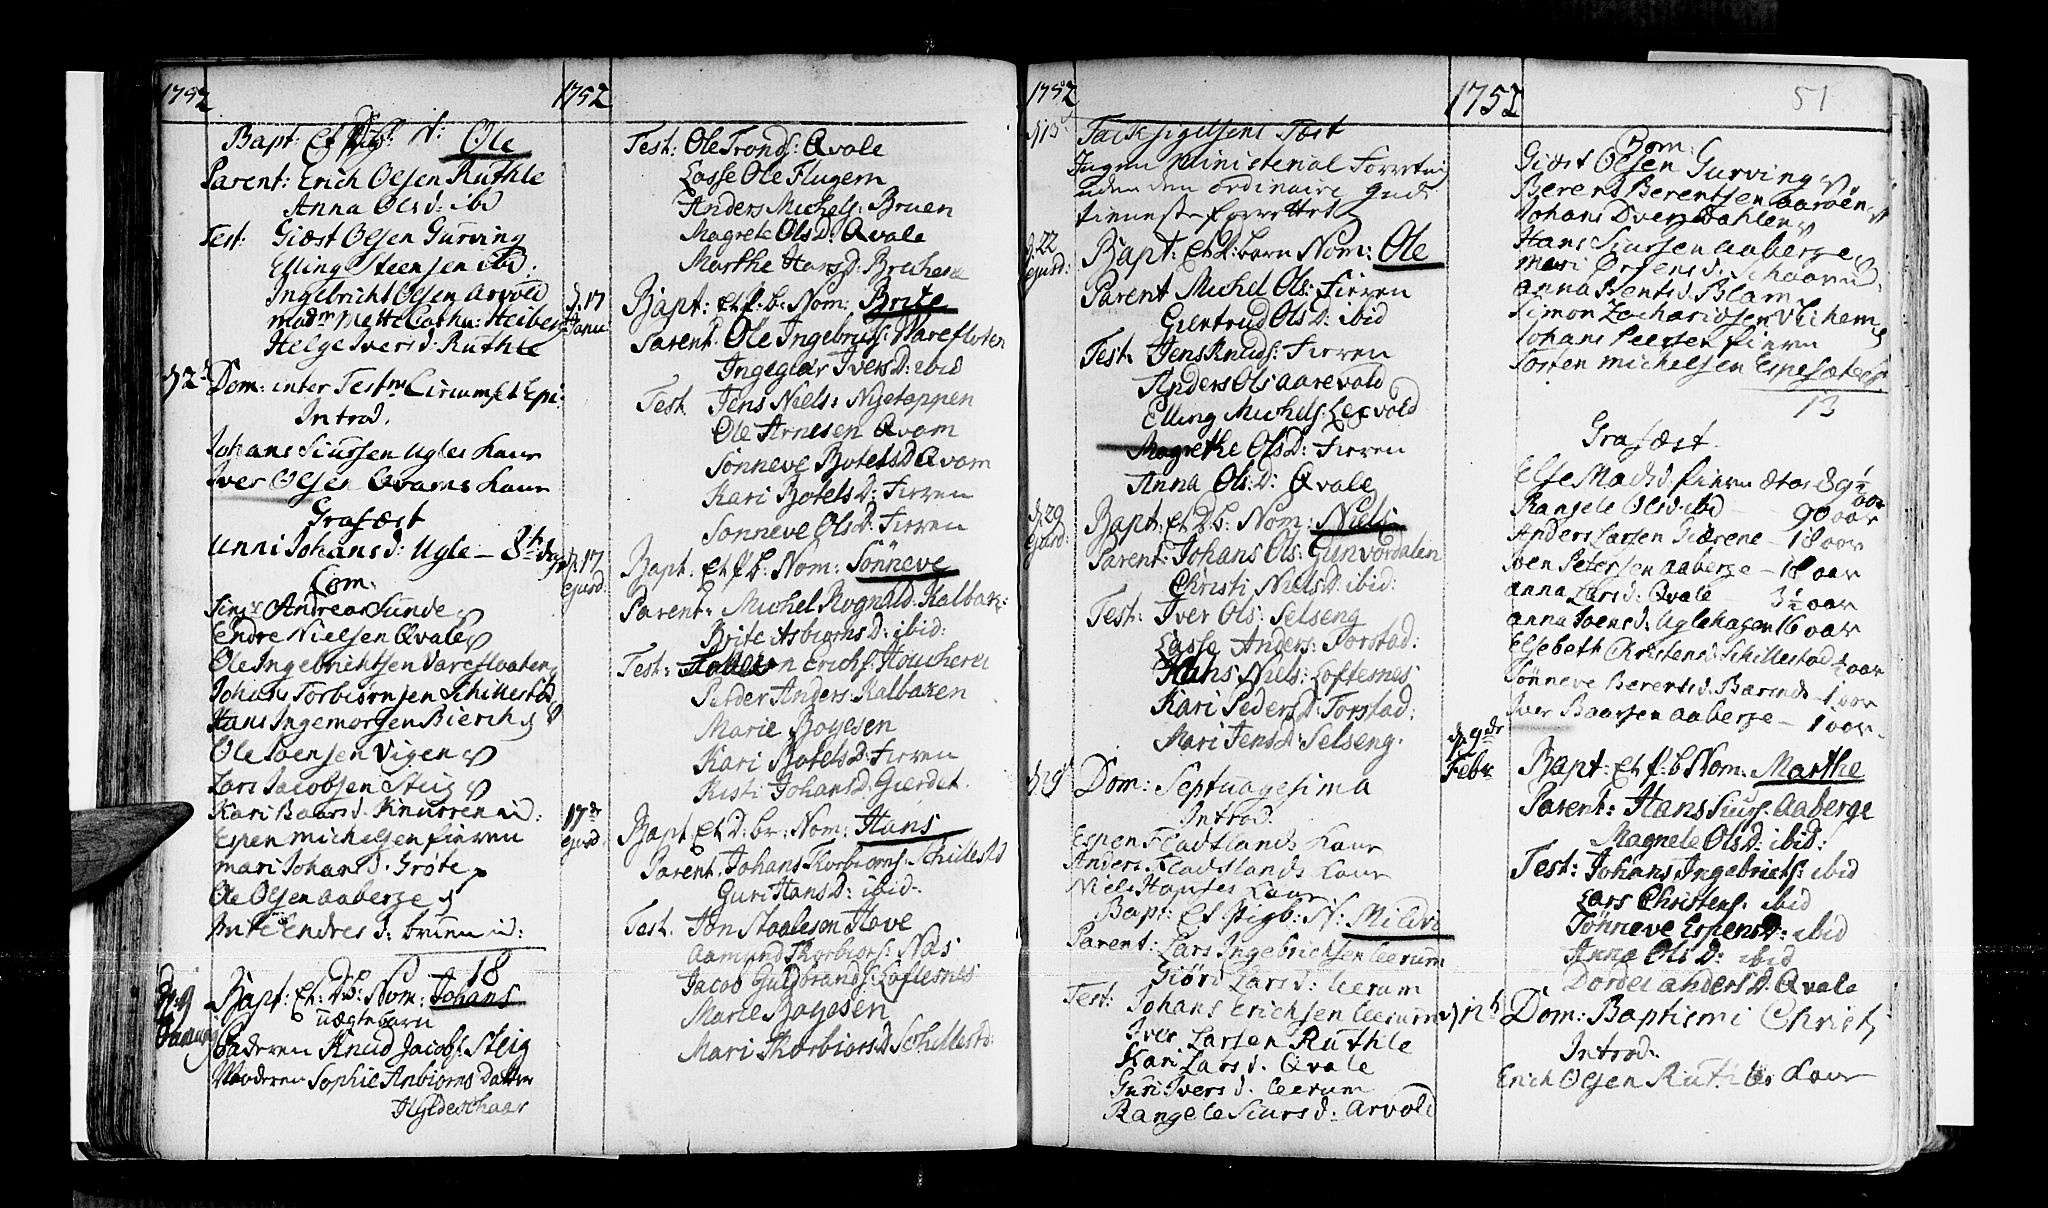 1752
Bapt: Et N: Ole
Parent: Erich Olsen Ruthle
Anna Olsd: ibd
Test: Giæst Olsen Gurving
Elling Steensen ibd:
Ingebricht Olsen Arvold
Madm Mette Cathr: Heiberg
Helge Ivers d: Ruthle
Dom: inter Festm Circumf et Epi:
Introd.
Johans Siursen Ugles Kone
Iver Olsen Qvams Kone
Grafæst
Unni Johansd: Ugle
Com.
Andreas Sunde
Endre Nielsen Qvale
Ole Ingebrichtsen Vareflaaten
Johans Torbiørnsen Schillestd
Hans Ingemorsen
Ole Joensen Vigen
Lars Jacobsen Steig
Kari Baarsd. Knurren
Espen Michelsen Fieren
Mari Johans d. Grøte
Ole Olsen Aaberge
Endres d:
18
d. 9
Januarij
Bapt: Et: Nom: Johans
uægte barn
Faderen Knud Jacobs: Steig
Moderen Sophie Anbiørns Datter
1752
Test: Ole Tronds: Qvale
Lasse Ole Flugem
Anders Michels: Bruen
Magrete Ols D: Qvale
Marthe Hans d:
d. 17
Janu:
Bapt: Et f. b. Nom: Brite
Parent. Ole Ingebrits: Varefloten
Ingegier Ivers D: ibid
Test. Jens Niels: Nyetappen
Ole Arnesen Qvam
Sønneve Botels D Qvam
Kari Botels D: Fierren
Sønneve Ols D: Fierren
d. 17
ejusd.
Bapt. Et f. b. Nom: Sønneve
Parent: Michel Rognald: Kalbak:
Brite Asbiørns D: ibid:
Test: Erichs:
Peder Anders: Kalbaken
Marie Boyesen
Kari Botels D: Fierren
Kisti Johans D. Gierdet.
17de
ejusd:
Bapt. Et D: br: Nom: Hans
Parent. Johans Thorbiørns: Schillestd
Guri Hans D: ibid:
Test. Jon Staalesøn Hove
Aamund Thorbiørs: Næs
Jacob Guldbrands: Loftesnes
Marie Boyesen
Mari Thorbiørs D Schillestd:
1752
Tacksigelsens Fæst
Ingen Ministerial Forretni
uden den ordinaire Guds
tienneste forrettet
d. 22
ejusd:
Bapt: Et D: barn Nom: Ole
Parent Michel Ols: Fierren
Giertrud Ols D: ibid
Test: Jens Knuds: Fierren
Anders Ols Aarevold
Elling Michels: Leqvold
Magrethe Ols D: Fierren
Anna Ols: D: Qvale
d. 29
Ejusd:
Bapt: Et D b: Nom: Niels
Parent: Johans Ols: Gunvordalen
Christi Niels D: ibid:
Test: Iver Ols: Selseng
Lasse Anders: Torstad:
Hans Niels: Loftesnes
Kari Peders D: Torstad:
Mari Jens D: Selseng.
Dom: Septuagesima
Introd.
Espen Fladtlands Kone
Anders Fladtlands Kone
Niels Kone
Bapt: Et N: Mildri
Parent: Lars Ingebrichsen Leerum
Giøri Lars d: Leerum
Test: Johans Erichsen Leerum
Iver Larsen Ruthle
Kari Lars d. Qvale
Guri Ivers d. Leerum
Rangele Siurs d: Arvold
1752
51
Com:
Giæst Olsen Gurving
Berent Berentsen Aarøen
Johans Iversen Dahlen
Hans Siursen Aaberge
Anna
Simon Zachariæsen
Johans Peersen Fieren
Tosten Michelsen Espesæteer
13
Grafæst
Else Madsd: Fieren
Rangele Olsd. ibd - 90 aar
Anders Larsen Giærene - 18 aar
Iven Petersen Aaberge - 18 aar
Anna Lars d: Qvale - 3½ aar
Anna Joens d: Uglehagen 16 aar
Elsebeth Christensd: Schillestad ½ aar
Sønneve Berentsd. - 1 aar
Iver Baarsen Aaberge - 1 aar.
d. 9de
Febr
Bapt: Et f: b Nom: Marthe
Parent: Hans Siurs: Aaberge
Magnele Ols D: ibid:
Test: Johans Ingebriets: ibid
Lars Christens: ibid
Sønneve Espens D: ibid
Anna Ols D: ibid
Dordei Anders D: Qvale
Dom: Baptismi Christi
Introd.
Erich Olsen Ruthles Kone